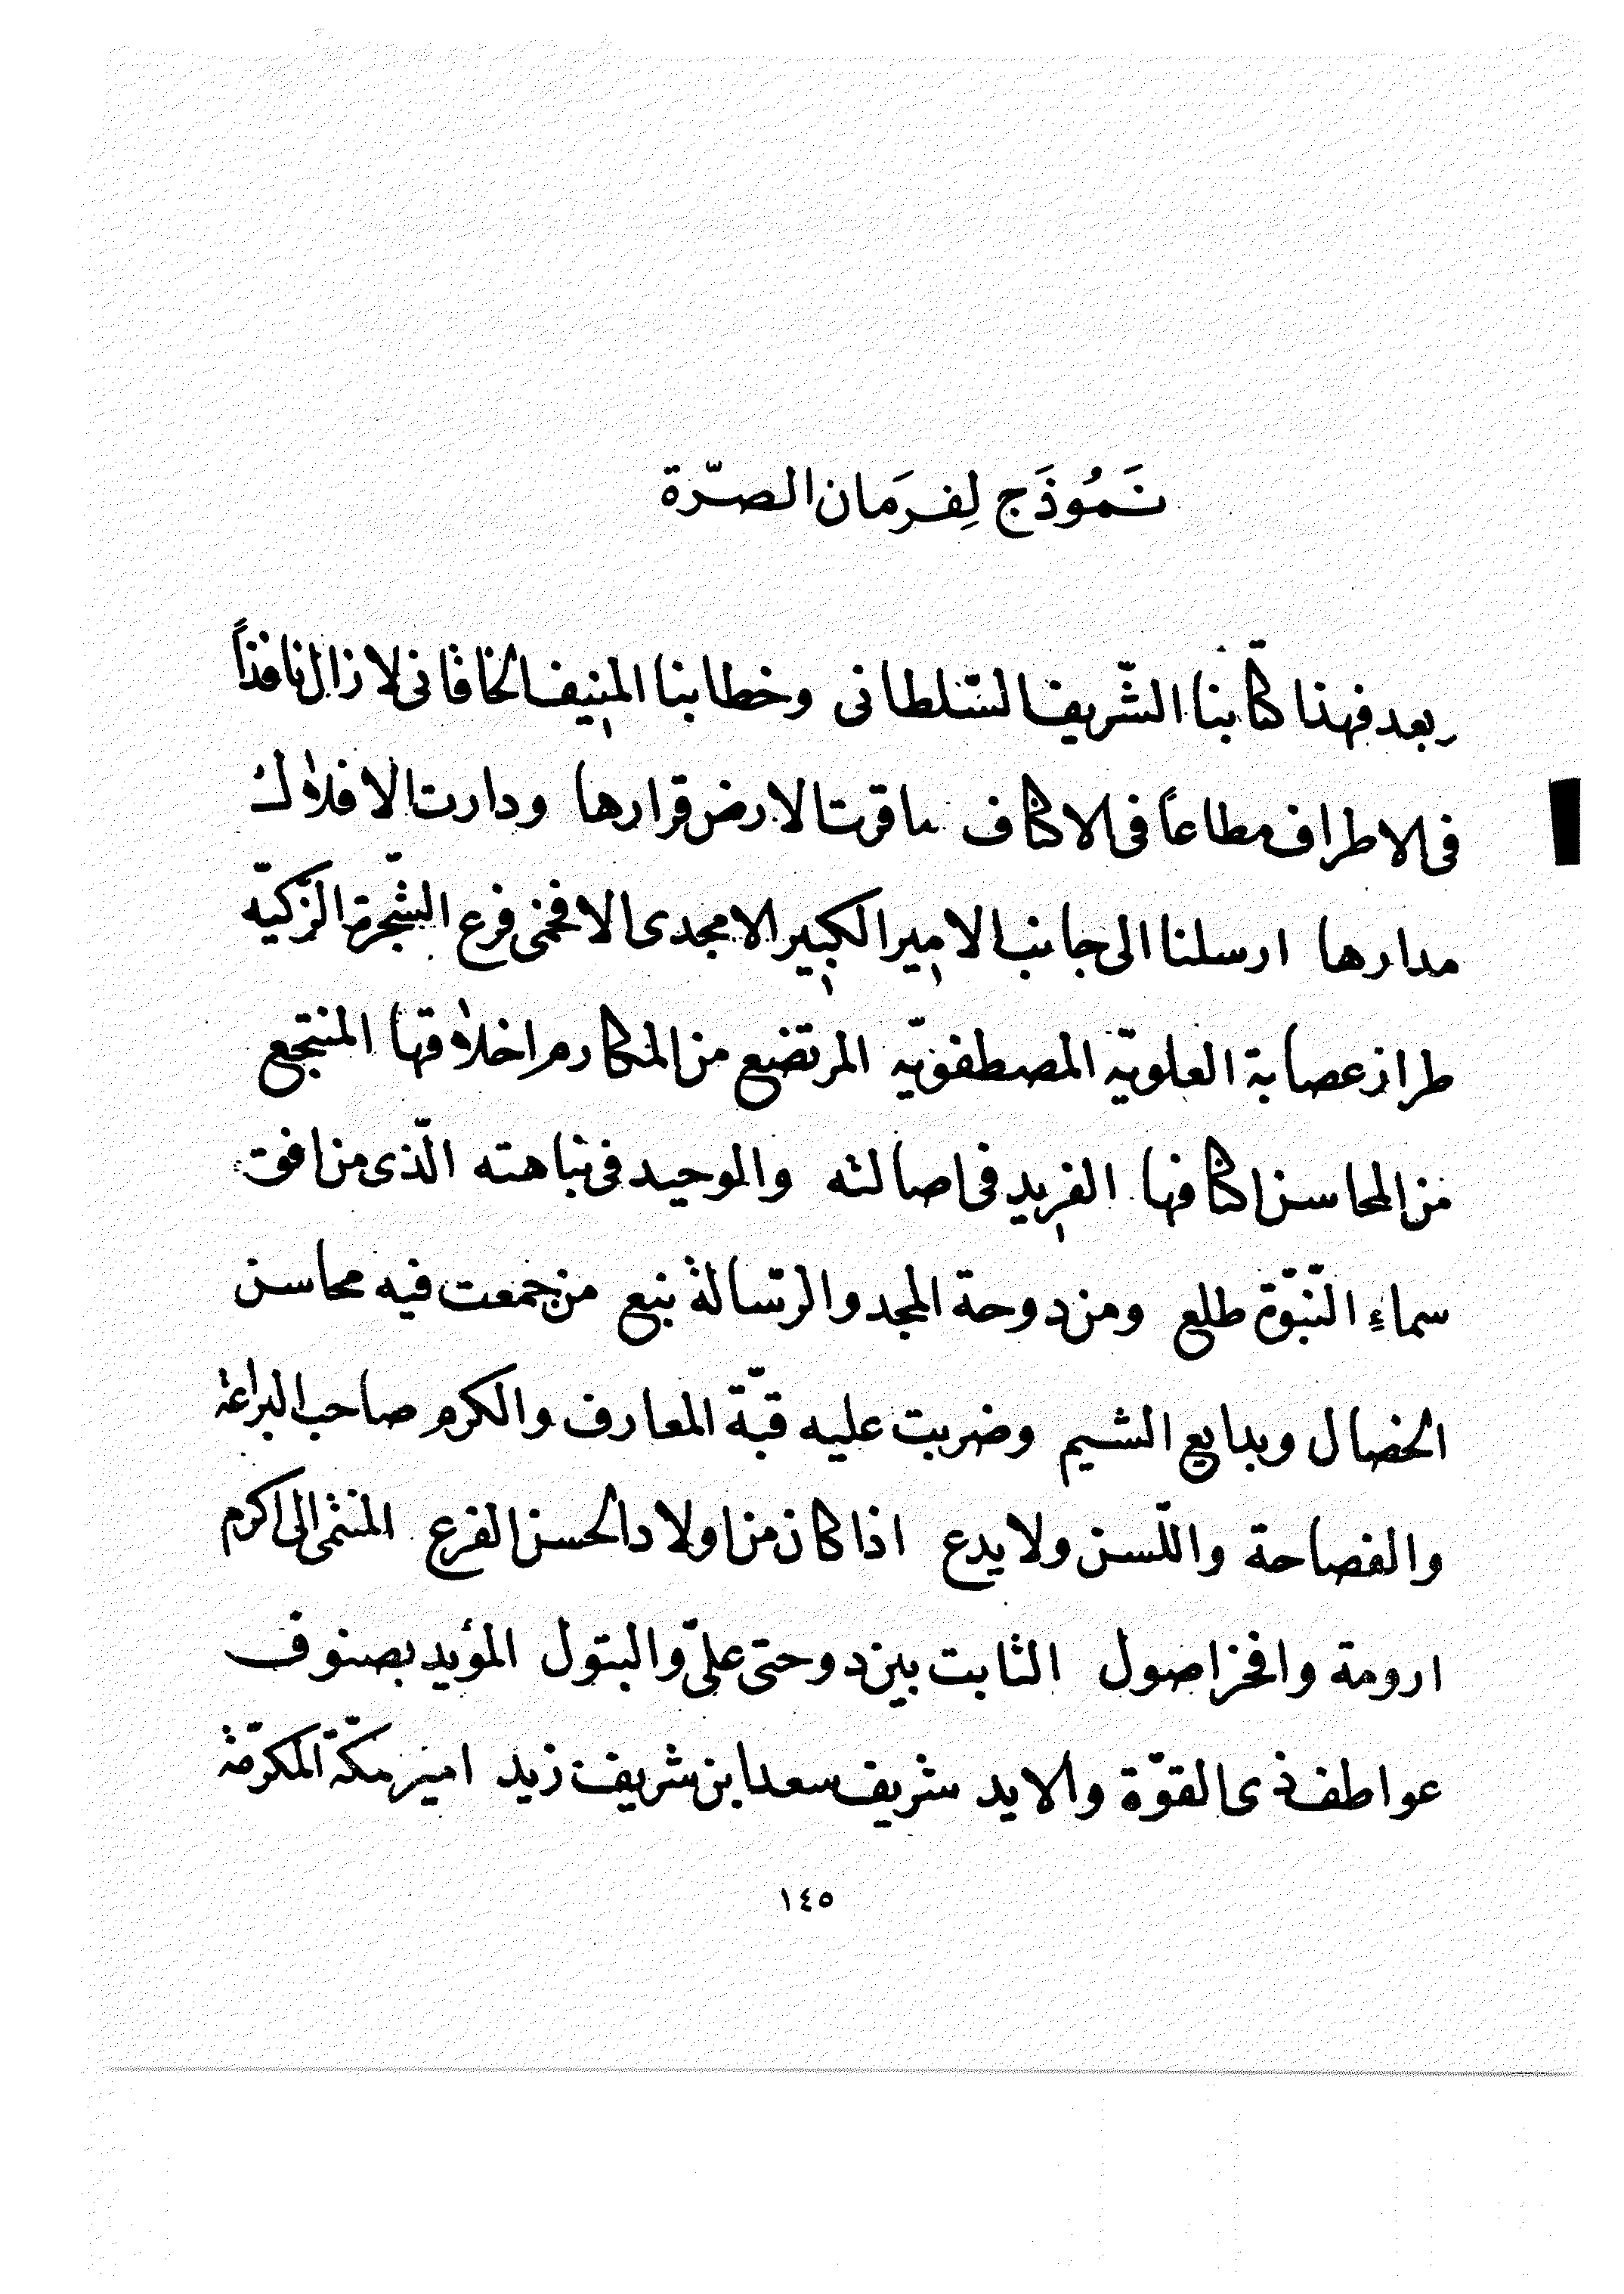 نَمُوذَج لِفرَمان الصّرة
وبعد فهذا كتابنا الشّريف السّلطانى وخطابنا المنيف الخاقانى لازال نافذاً
فى الاطراف مطاعاً فى الاكناف ماقرت الارض قرارها ودارت الافلاك
مدارها ارسلنا الى جانب الامير الكبير الامجدى الافخمى فرع الشّجرة الزّكيّه
طراز عصابة العلويّه المصطفويّه المرتضع من المكارم اخلافها المنتجع
من المحاسن اكنافها الفريد فى اصالته والموحيد فى نباهته الّذى من افق
سماءِ النّبوّة طلع ومن دوحة المجد والرّسالة نبع من جمعت فيه محاسن
الخصال وبدايع الشيم وضربت عليه قبّة المعارف والكرم صاحب البراعة
والفصاحة واللّسن ولابدع اذا كان من اولاد الحسن الفرع المنتمى الى اكرم
ارومة وافخر اصول الثابت بين دوحتى علىّ والبتول المؤيد بصنوف
عواطف ذى القوّة والايد شريف سعد ابن شريف زيد امير مكّة المكرّمة
١٤٥